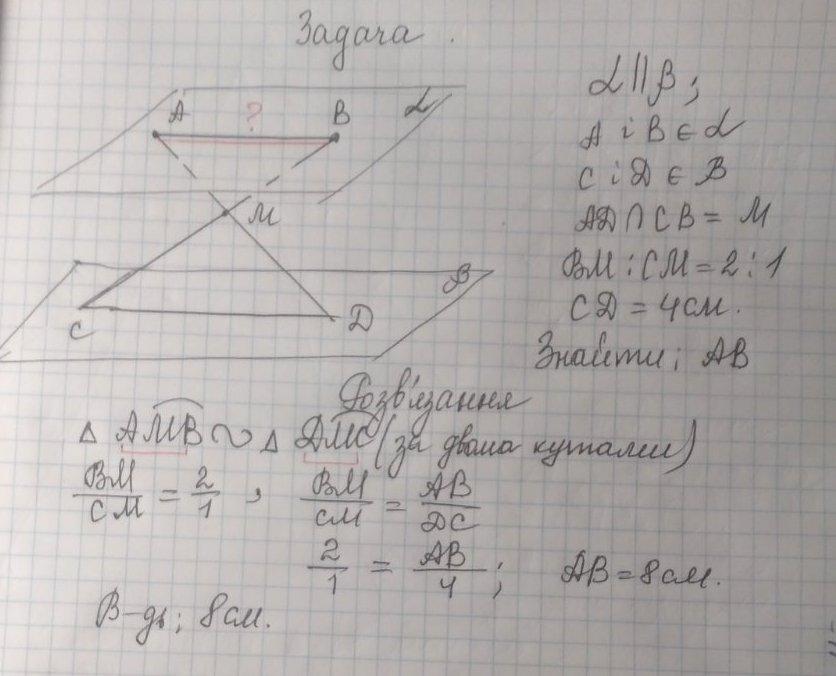 Задача.
A ? B α
M
C D β
α || β;
A і B ∈ α
C і D ∈ β
AD ∩ CB = M
BM : CM = 2 : 1
CD = 4 см.
Знайти; AB
Розв'язання
Δ AMB ∾ Δ DMC (за двома кутами)
BM/CM = 2/1 , BM/CM = AB/DC
2/1 = AB/4 ; AB = 8 см.
В-дь; 8 см.